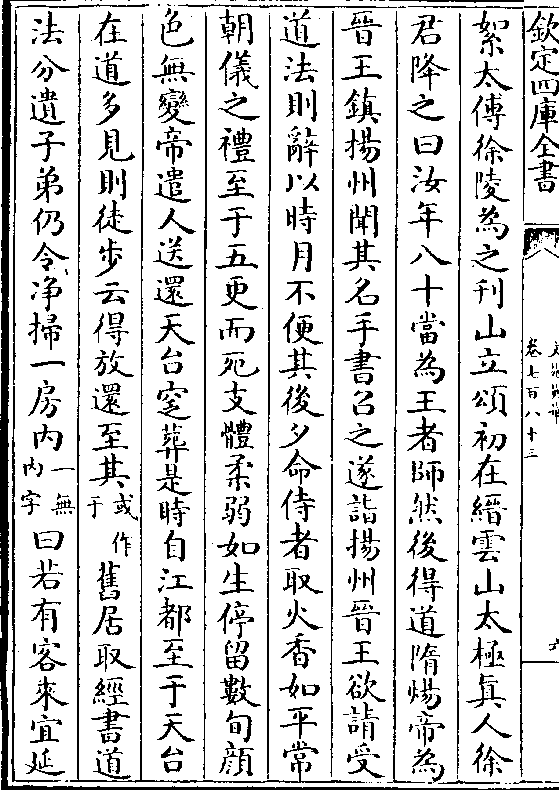 欽定四庫全書
卷七百八十三
六
絮太傅徐陵為之刊山立頌初在縉雲山太極真人徐
君降之曰汝年八十當為王者師然後得道隋煬帝為
晉王鎮揚州聞其名手書召之遂詣揚州晉王欲請受
道法則辭以時月不便其後夕命侍者取火香如平常
朝儀之禮至于五更而死支體柔弱如生停留數旬顔
色無變帝遣人送還天台窆葬是時自江都至于天台
在道多見則徒步云得放還至其或作于舊居取經書道
法分遺子弟仍令净掃一房内一無内字曰若有客來宜延